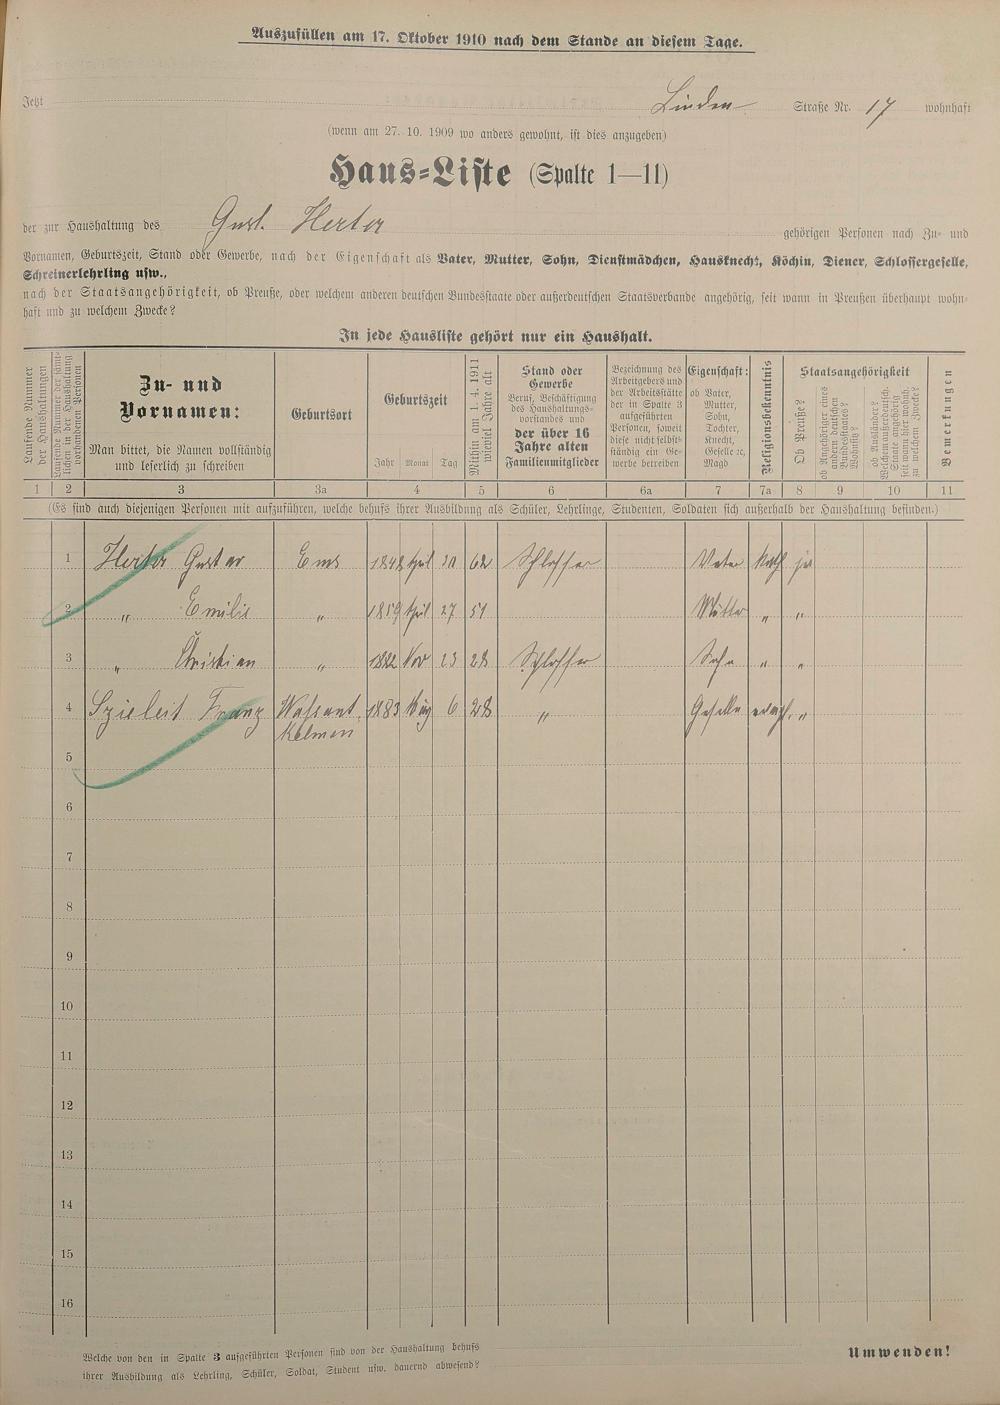 Auszufüllen am 17. Oktober 1910 nach dem Stande an diesem Tage.
Jetzt Linden Straße Nr. 17 wohnhaft
(wenn am 27. 10. 1909 wo anders gewohnt, ist dies anzugeben)
Haus-Liste (Spalte 1—11)
der zur Haushaltung des Gust. Herter gehörigen Personen nach Zu- und
Vornamen, Geburtszeit, Stand oder Gewerbe, nach der Eigenschaft als Vater, Mutter, Sohn, Dienstmädchen, Hausknecht, Köchin, Diener, Schlossergeselle,
Schreinerlehrling usw.,
nach der Staatsangehörigkeit, ob Preuße, oder welchem anderen deutschen Bundesstaate oder außerdeutschen Staatsverbande angehörig, seit wann in Preußen überhaupt wohn-
haft und zu welchem Zwecke?
In jede Hausliste gehört nur ein Haushalt.
Laufende Nummer der Haushaltungen
Laufende Nummer der sämt-lichen in der Haushaltung vorhandenen Personen
Zu- und
Vornamen:
Man bittet, die Namen vollständig
und leserlich zu schreiben
Geburtsort
Geburtszeit
Jahr Monat Tag
Mithin am 1. 4. 1911
wieviel Jahre alt
Stand oder
Gewerbe
Beruf, Beschäftigung
des Haushaltungs-
vorstandes und
der über 16
Jahre alten
Familienmitglieder
Bezeichnung des
Arbeitgebers und
der Arbeitsstätte
der in Spalte 3
aufgeführten
Personen, soweit
diese nicht selbst-
ständig ein Ge-
werbe betreiben
Eigenschaft:
ob Vater,
Mutter,
Sohn,
Tochter,
Knecht,
Geselle ec,
Magd
Religionsbekenntnis
Staatsangehörigkeit
Ob Preuße?
ob Angehöriger eines
andern deutschen
Bundesstaates?
Wohnsitz?
ob Ausländer?
Welchem außerdeutsch.
Staate angehörig
seit wann hier wohnh.
zu welchem Zwecke?
Bemerkungen
1 2 3 3a 4 5 6 6a 7 7a 8 9 10 11
(Es sind auch diejenigen Personen mit aufzuführen, welche behufs ihrer Ausbildung als Schüler, Lehrlinge, Studenten, Soldaten sich außerhalb der Haushaltung befinden.)
1 Herter Gustav Ems 1848 April 30 62 Schlosser Vater kath ja
2 " Emilie " 1859 April 27 51 Mutter " "
3 " Christian " 1882 Nov 23 28 Schlosser Sohn " "
4 Szieleit Franz 1883 Aug 6 28 " Geselle evangl. "
5
6
7
8
9
10
11
12
13
14
15
16
Welche von den in Spalte 3 aufgeführten Personen sind von der Haushaltung behufs
ihrer Ausbildung als Lehrling, Schüler, Soldat, Student usw. dauernd abwesend?
Umwenden!